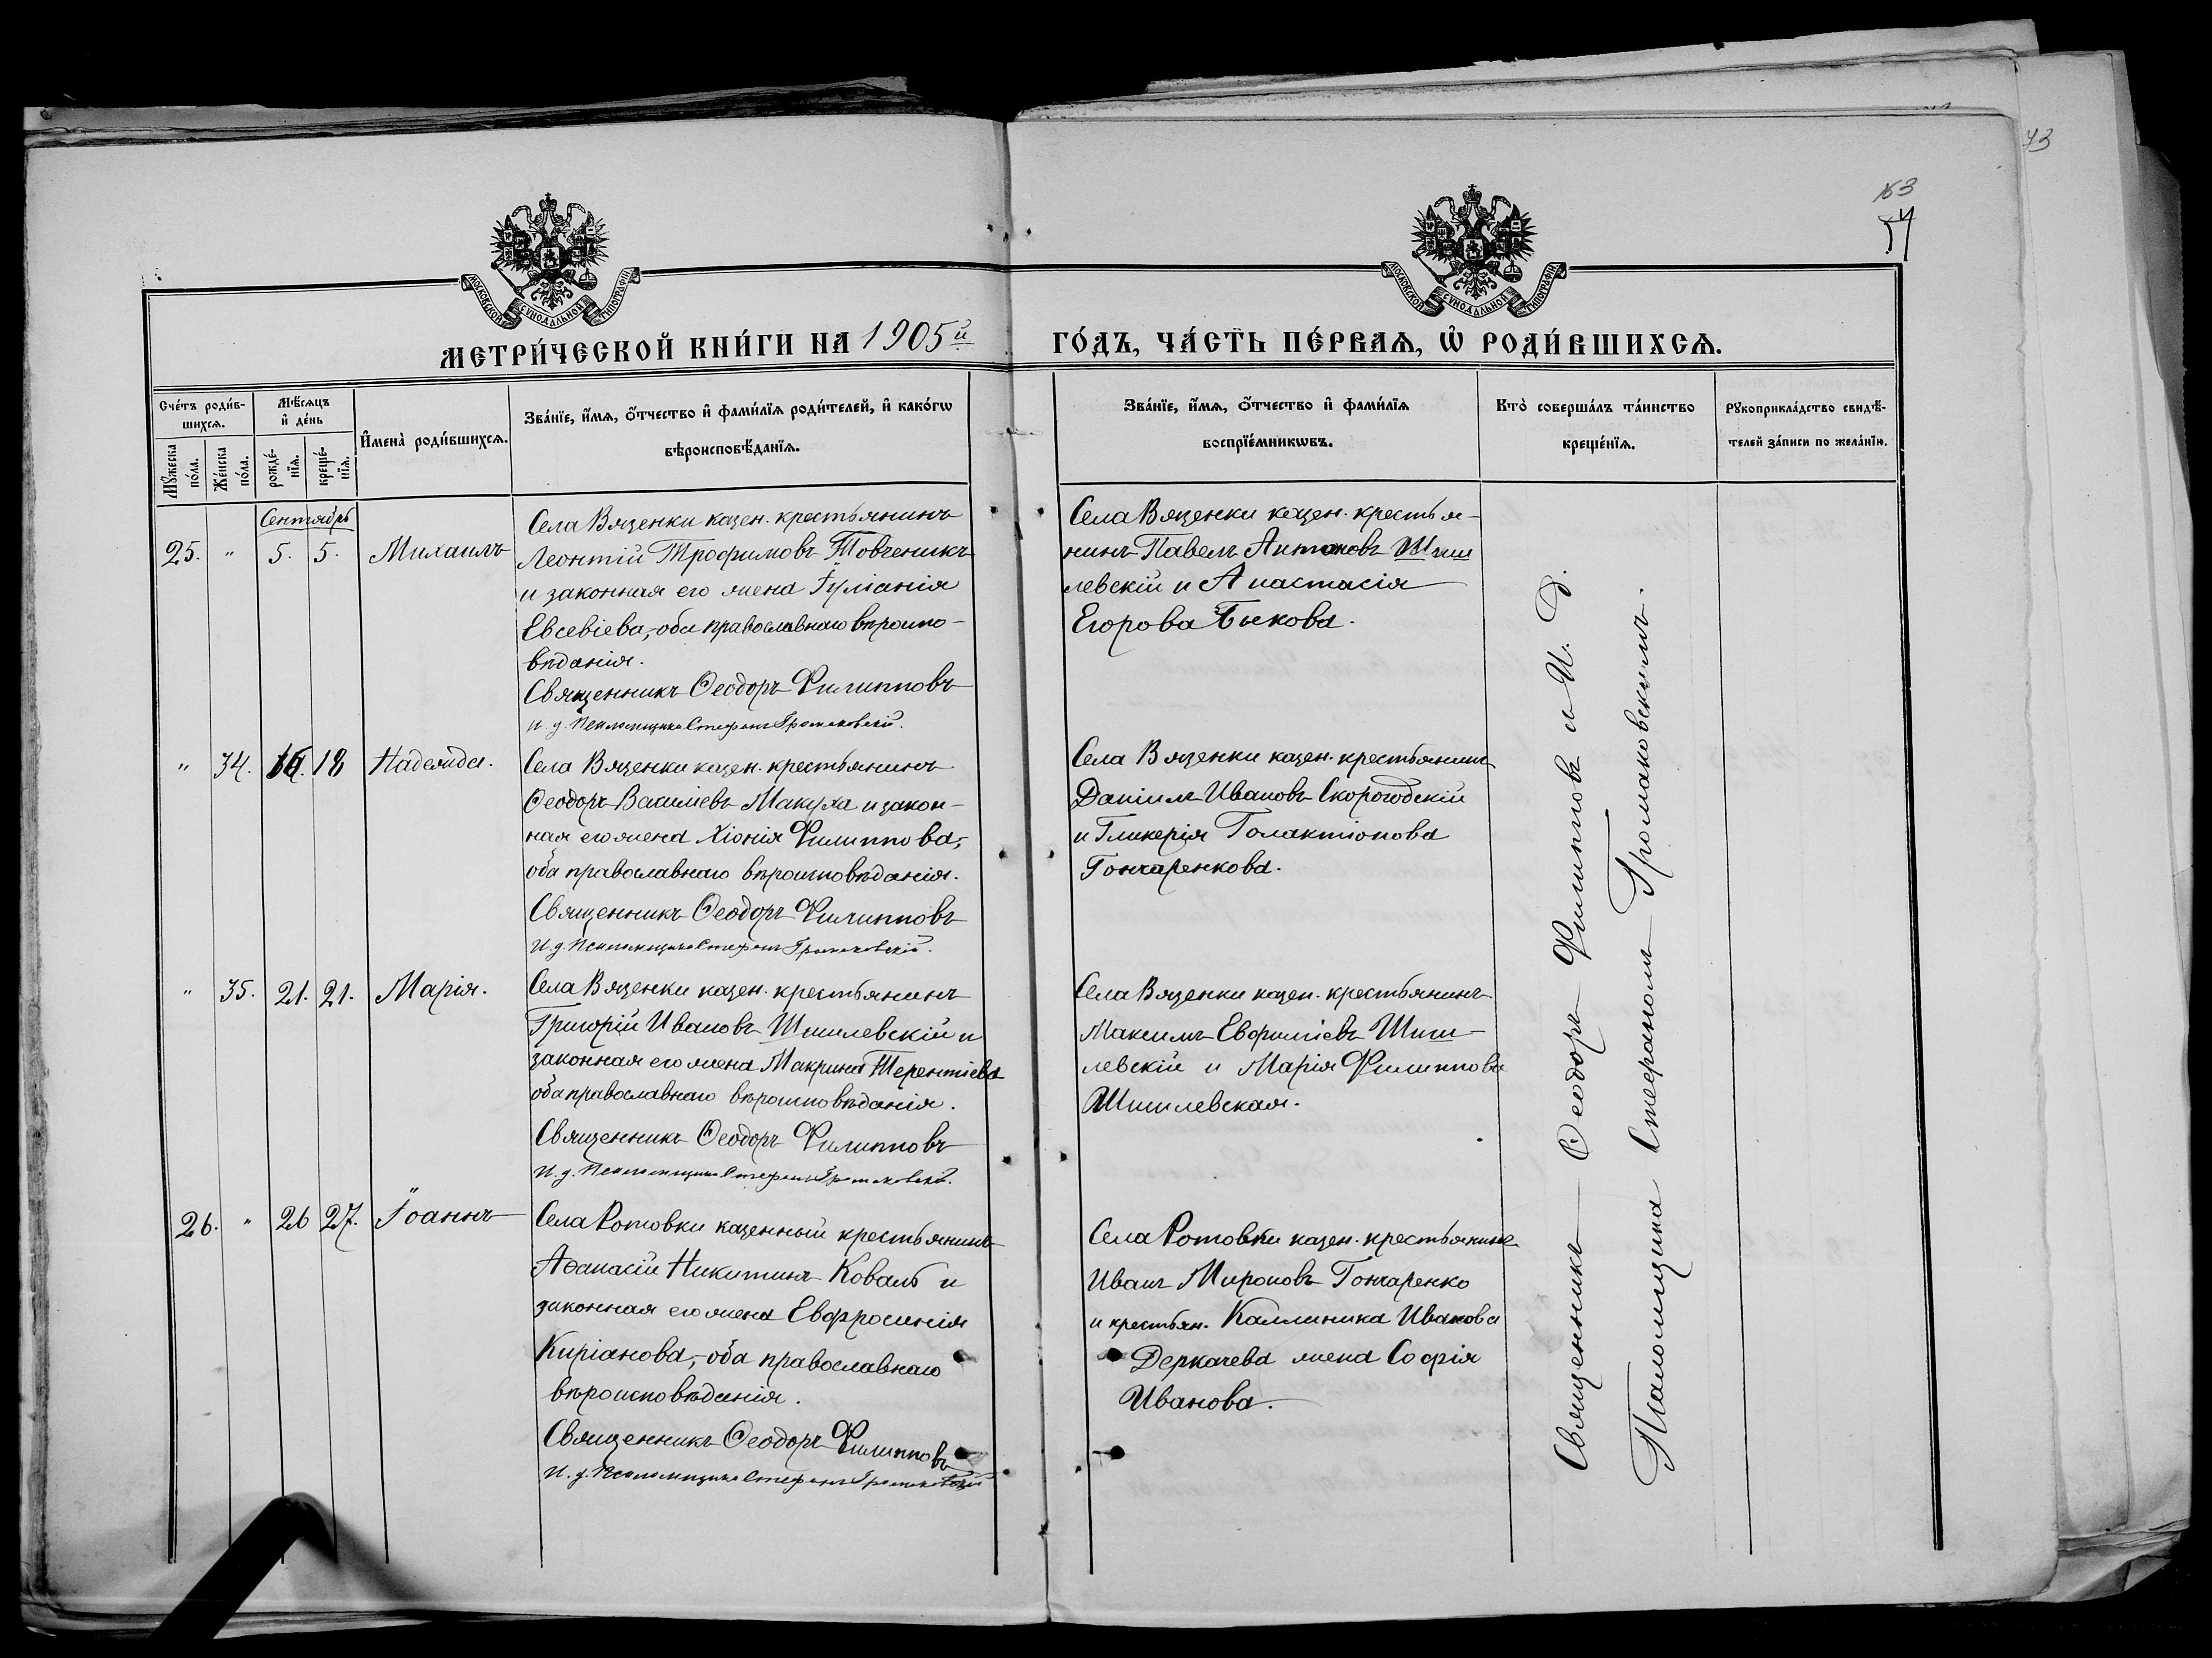 73
163
54
МОСКОВСКОЙ СѴНОДАЛЬНОЙ ТИПОГРАФІИ
МОСКОВСКОЙ СѴНОДАЛЬНОЙ ТИПОГРАФІИ
МЕТРИ́ЧЕСКОЙ КНИ́ГИ НА 1905й ГО́ДЪ, ЧА́СТЬ ПЕ́РВАѦ, Ѡ҆ РОДИ́ВШИХСѦ.
Сче́тъ роди́в-
шихсѧ.
Мꙋ́жеска по́ла.
Же́нска по́ла.
Мѣ́сѧцъ
и҆ де́нь
рожде́-
нїѧ.
креще́-
нїѧ.
И҆мена̀ роди́вшихсѧ.
Зва́нїе, и҆́мѧ, ѻ҆́тчество и҆ фами́лїѧ роди́телей, и҆ како́гѡ
вѣроисповѣ́данїѧ.
Зва́нїе, и҆́мѧ, ѻ҆́тчество и҆ фами́лїѧ
воспрїе́мникѡвъ.
Кто̀ соверша́лъ та́инство
креще́нїѧ.
Рꙋкоприкла́дство свидѣ́-
телей за́писи по жела́нїю.
Сентябрь
25. " 5. 5. Михаилъ
Села Вязенки казен. крестьянинъ
Леонтій Трофимовъ Товченикъ
и законная его жена Іуліанія
Евсевіева,-оба православнаго вѣроиспо-
вѣданія.
Священникъ Ѳеодоръ Филипповъ
И. д. Псаломщика Стефанъ Громаковскій.
Села Вязенки казен. крестья-
нинъ Павелъ Антоновъ Шиш
левскій и Анастасія
Егорова Быкова.
" 34. 18 Надежда.
Села Вязенки казен. крестьянинъ
Ѳеодоръ Васильевъ Макуха и закон-
ная его жена Хіонія Филиппова,-
оба православнаго вѣроисповѣданія.
Священникъ Ѳеодоръ Филипповъ
И. д. Псаломщика Стефанъ Громаковскій.
Села Вязенки казен. крестьянинъ
Даніилъ Ивановъ Скорогодскій
и Гликерія Голактіонова
Гончаренкова.
" 35. 21. 21. Марія.
Села Вязенки казен. крестьянинъ
Григорій Ивановъ Шишлевскій и
законная его жена Макрина Терентіева
оба православнаго вѣроисповѣданія.
Священникъ Ѳеодоръ Филипповъ
И. д. Псаломщика Стефанъ Громаковскій.
Села Вязенки казен. крестьянинъ
Максимъ Евфиміевъ Шиш-
левскій и Марія Филиппова
Шишлевская.
26. " 26 27. Іоаннъ
Села Ротовки казенный крестьянинъ
Аѳанасій Никитинъ Коваль и
законная его жена Евфросинія
Кипріанова,-оба православнаго
вѣроисповѣданія.
Священникъ Ѳеодоръ Филипповъ
И. д. Псаломщика Стефанъ Громаковскій
Села Ротовки казен. крестьянинъ
Иванъ Мироновъ Гончаренко
и крестьян. Каллиника Иванова
Деркачева жена Софія
Иванова.
Священникъ Ѳеодоръ Филипповъ и И. Д.
Псаломщика Стефаномъ Громаковскимъ.